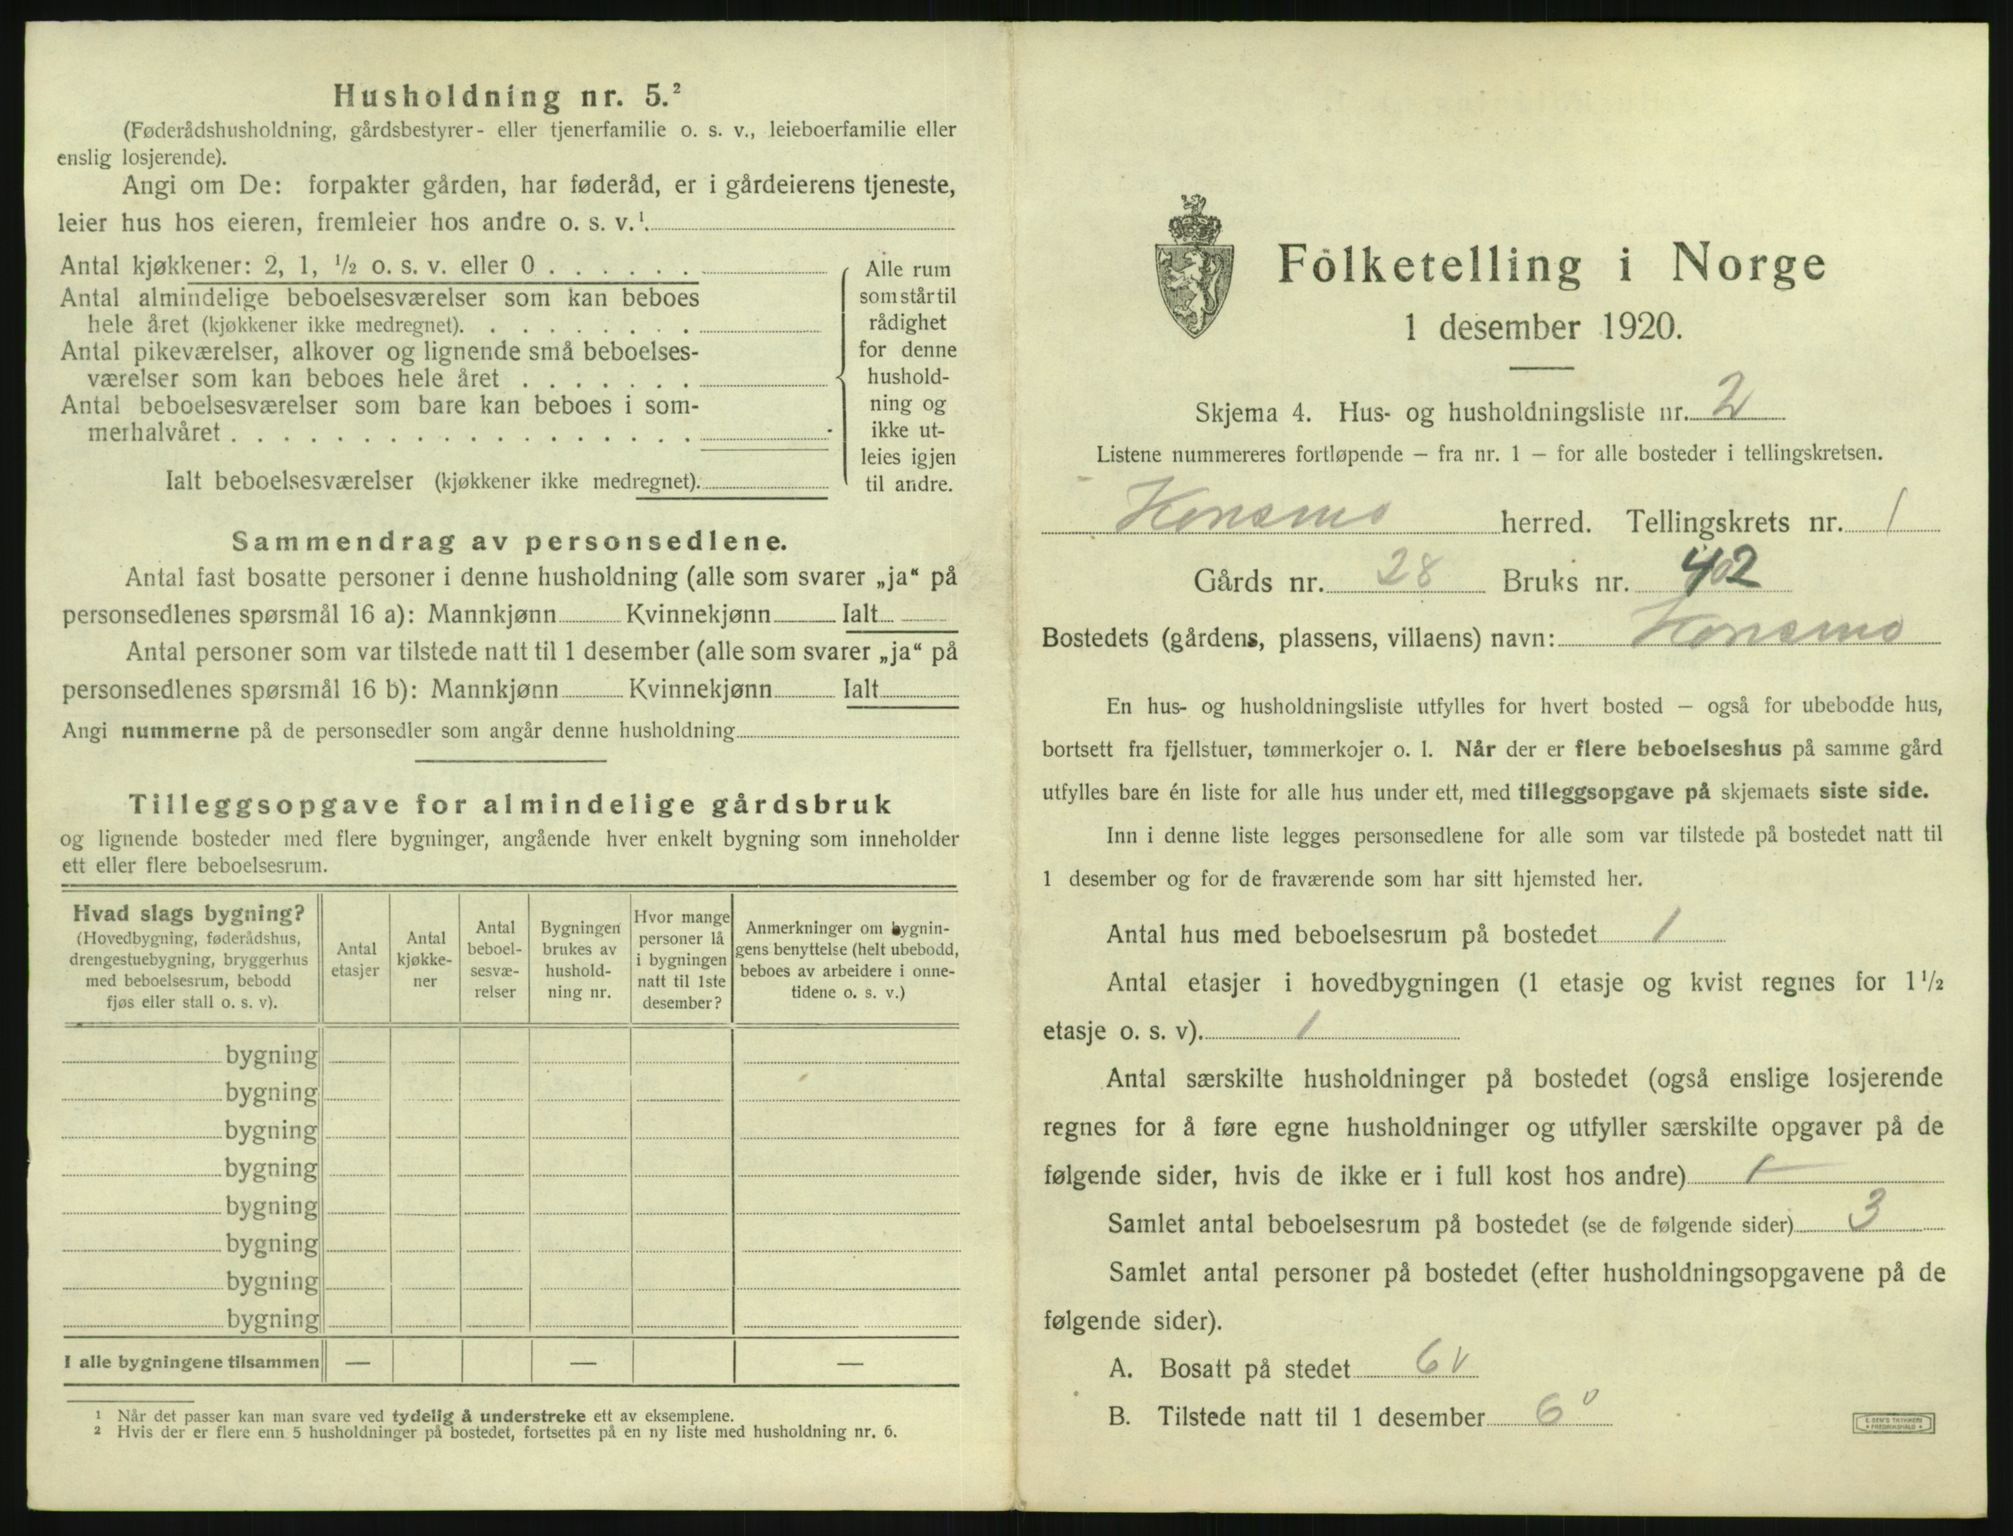 Husholdning nr. 5.²
(Føderådshusholdning, gårdsbestyrer- eller tjenerfamilie o. s. v., leieboerfamilie eller
enslig losjerende).
Angi om De: forpakter gården, har føderåd, er i gårdeierens tjeneste,
leier hus hos eieren, fremleier hos andre o. s. v.¹
Antal kjøkkener: 2, 1, ½ o. s. v. eller 0 . . . . . .
Antal almindelige beboelsesværelser som kan beboes
hele året (kjøkkener ikke medregnet). . . . . . . . .
Antal pikeværelser, alkover og lignende små beboelses-
værelser som kan beboes hele året . . . . . . .
Antal beboelsesværelser som bare kan beboes i som-
merhalvåret . . . . . . . . . . . . . . . . . .
Ialt beboelsesværelser (kjøkkener ikke medregnet).
Alle rum
som står til
rådighet
for denne
hushold-
ning og
ikke ut-
leies igjen
til andre.
Sammendrag av personsedlene.
Antal fast bosatte personer i denne husholdning (alle som svarer „ja“ på
personsedlenes spørsmål 16 a): Mannkjønn Kvinnekjønn Ialt
Antal personer som var tilstede natt til 1 desember (alle som svarer „ja“ på
personsedlenes spørsmål 16 b): Mannkjønn Kvinnekjønn Ialt
Angi nummerne på de personsedler som angår denne husholdning
Tilleggsopgave for almindelige gårdsbruk
og lignende bosteder med flere bygninger, angående hver enkelt bygning som inneholder
ett eller flere beboelsesrum.
Hvad slags bygning?
(Hovedbygning, føderådshus,
drengestuebygning, bryggerhus
med beboelsesrum, bebodd
fjøs eller stall o. s. v).
Antal
etasjer
Antal
kjøkke-
ner
Antal
beboel-
sesvæ-
relser
Bygningen
brukes av
hushold-
ning nr.
Hvor mange
personer lå
i bygningen
natt til 1ste
desember?
Anmerkninger om bygnin-
gens benyttelse (helt ubebodd,
beboes av arbeidere i onne-
tidene o. s. v.)
bygning
bygning
bygning
bygning
bygning
bygning
bygning
bygning
I alle bygningene tilsammen — — —
¹ Når det passer kan man svare ved tydelig å understreke ett av eksemplene.
² Hvis der er flere enn 5 husholdninger på bostedet, fortsettes på en ny liste med husholdning nr. 6.
Folketelling i Norge
1 desember 1920.
Skjema 4. Hus- og husholdningsliste nr. 2
Listene nummereres fortløpende – fra nr. 1 – for alle bosteder i tellingskretsen.
Konsmo herred. Tellingskrets nr. 1
Gårds nr. 28 Bruks nr.
Bostedets (gårdens, plassens, villaens) navn: Konsmo
En hus- og husholdningsliste utfylles for hvert bosted – også for ubebodde hus,
bortsett fra fjellstuer, tømmerkojer o. l. Når der er flere beboelseshus på samme gård
utfylles bare én liste for alle hus under ett, med tilleggsopgave på skjemaets siste side.
Inn i denne liste legges personsedlene for alle som var tilstede på bostedet natt til
1 desember og for de fraværende som har sitt hjemsted her.
Antal hus med beboelsesrum på bostedet 1
Antal etasjer i hovedbygningen (1 etasje og kvist regnes for 1½
etasje o. s. v). 1
Antal særskilte husholdninger på bostedet (også enslige losjerende
regnes for å føre egne husholdninger og utfyller særskilte opgaver på de
følgende sider, hvis de ikke er i full kost hos andre) 1
Samlet antal beboelsesrum på bostedet (se de følgende sider) 3
Samlet antal personer på bostedet (efter husholdningsopgavene på de
følgende sider).
A. Bosatt på stedet 6 v
B. Tilstede natt til 1 desember 6 v